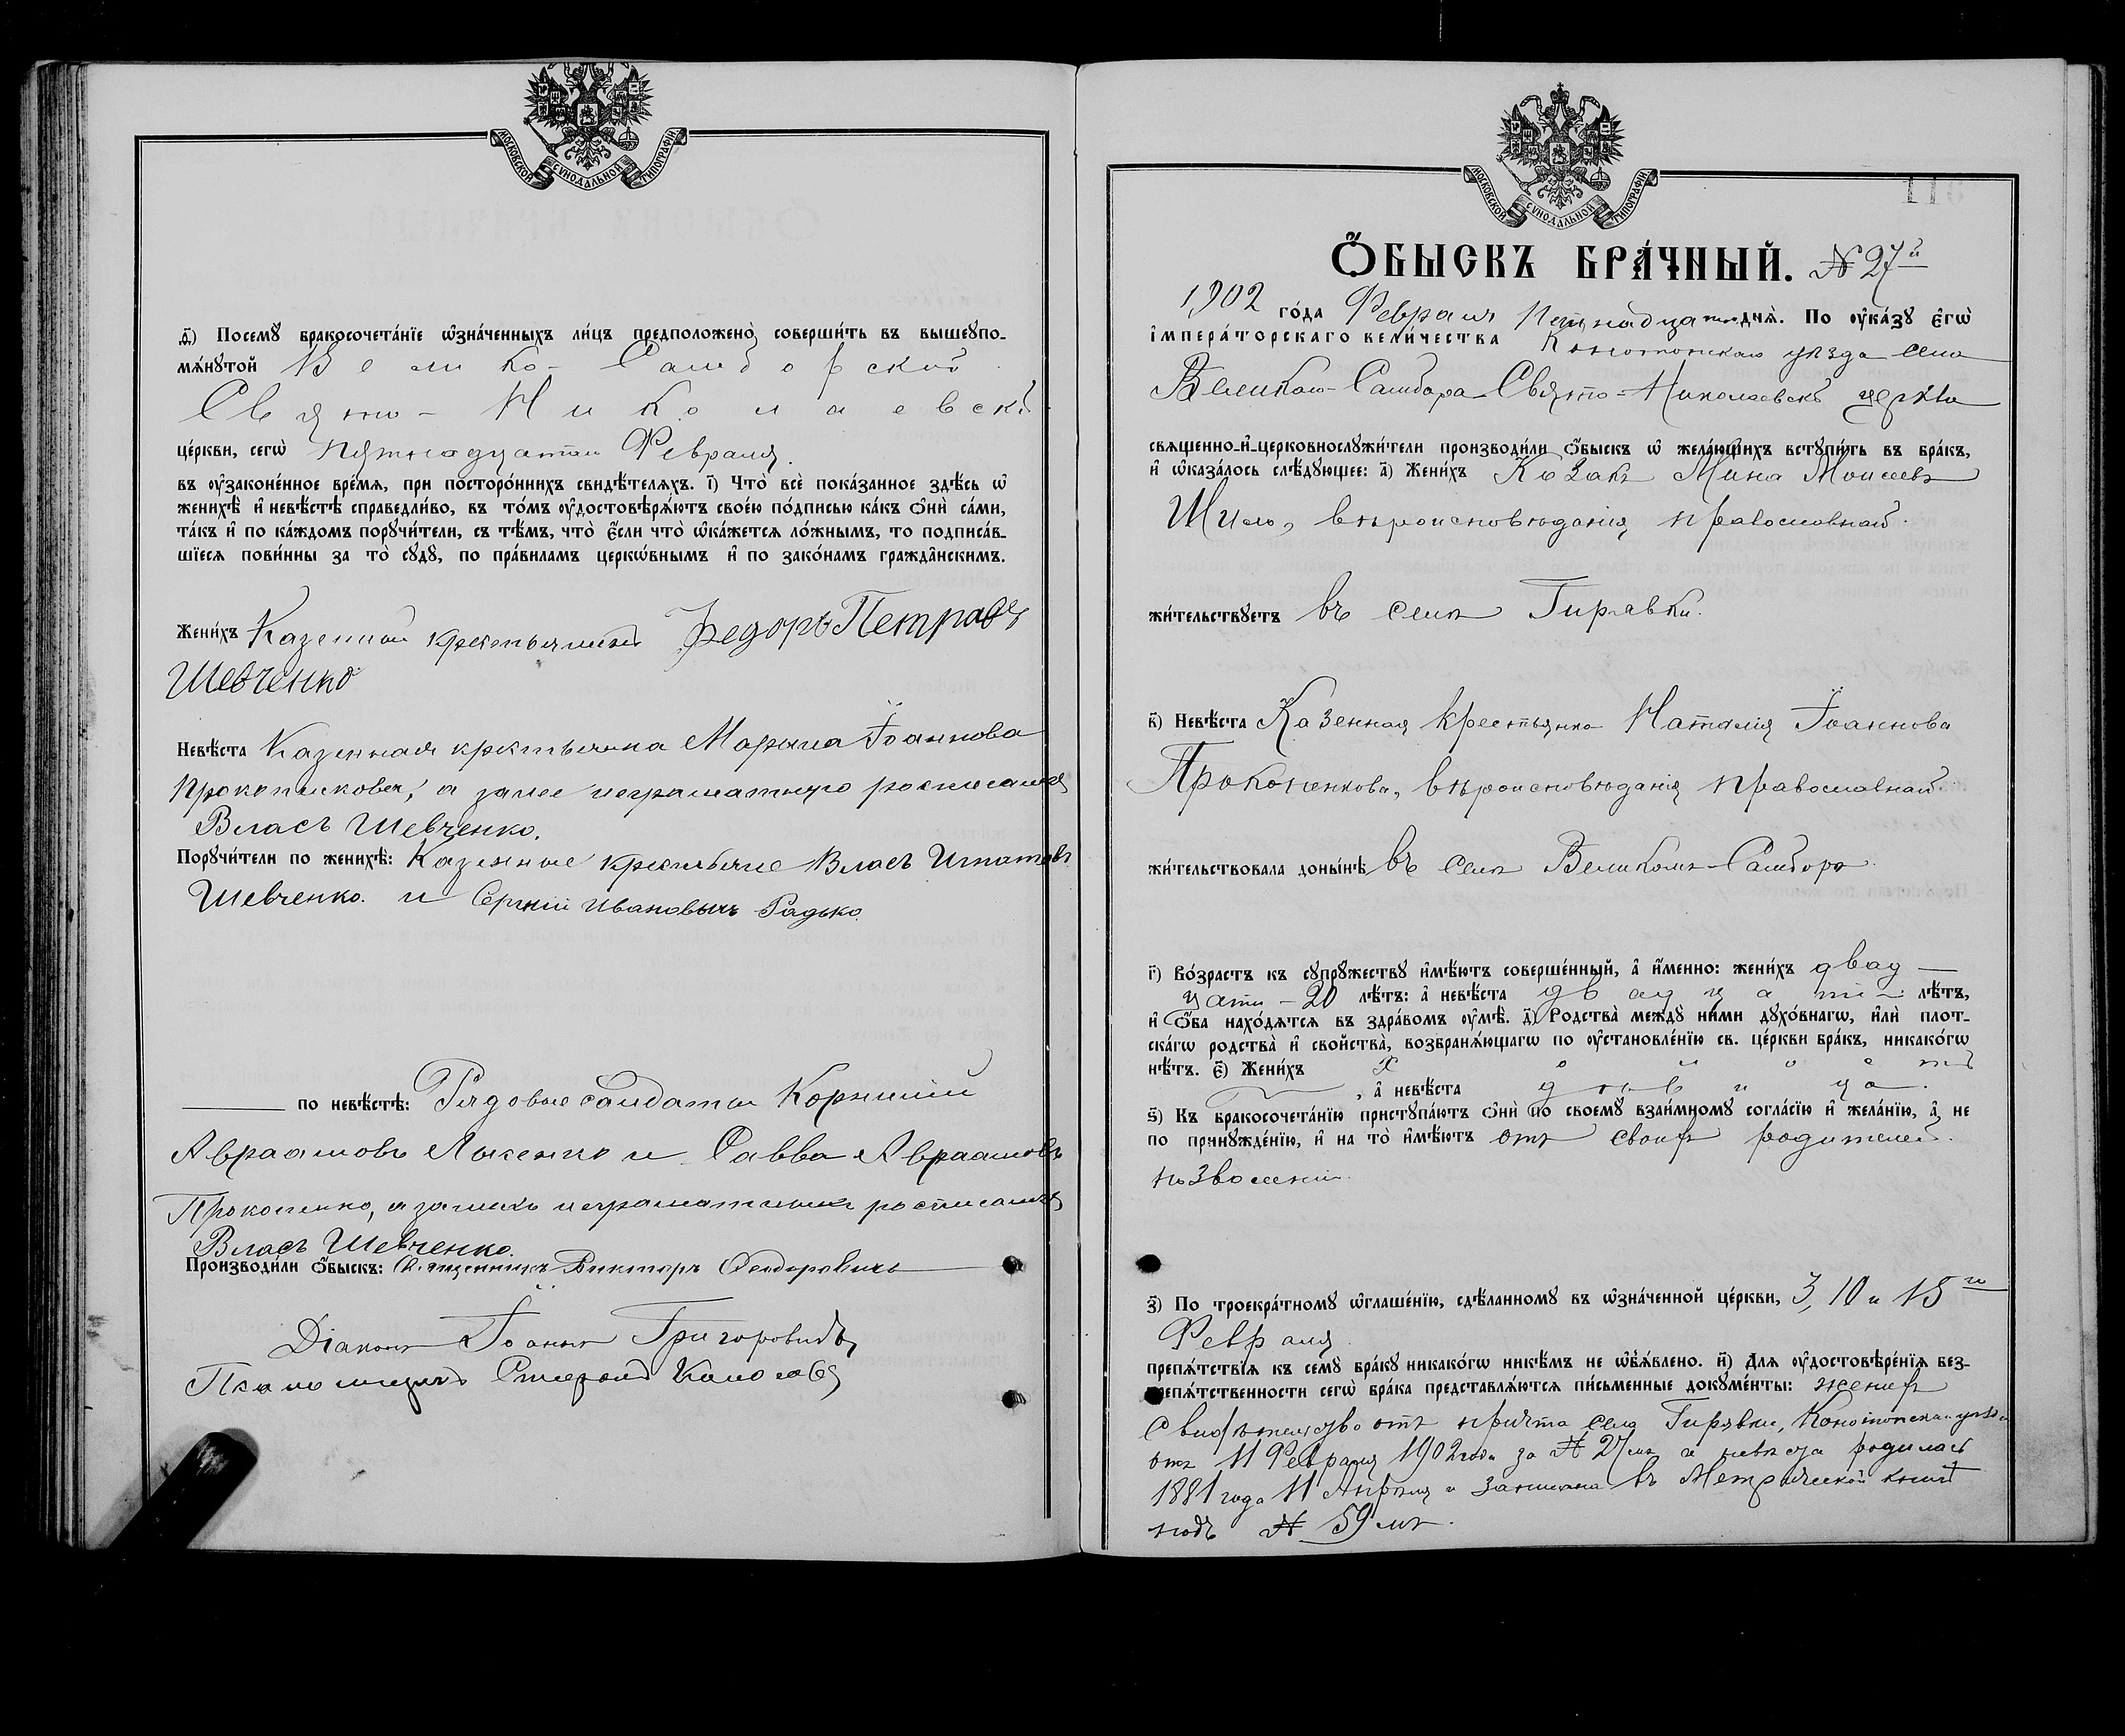 МОСКОВСКОЙ СѴНОДАЛЬНОЙ ТИПОГРАФІИ
Посемꙋ бракосочета́нїе ѡ҆зна́ченныхъ ли́цъ предположено̀ соверши́ть въ вышеꙋпо-
мѧ́нꙋтой Велико-Самборской
Свято-Николаевской
це́ркви, сегѡ̀ пятнадцатаго Февраля
въ ᲂу҆законе́нное вре́мѧ, при посторо́ннихъ свидѣ́телѧхъ. і҃) Что̀ всѐ пока́занное здѣ́сь ѡ҆
женихѣ̀ и҆ невѣ́стѣ справедли́во, въ то́мъ ᲂу҆достовѣрѧ́ютъ свое́ю по́дписью ка́къ ѻ҆нѝ са́ми,
та́къ и҆ по ка́ждомъ порꙋчи́тели, съ тѣ́мъ, что̀ є҆́сли что̀ ѡ҆ка́жется ло́жнымъ, то подписа́в-
шїесѧ пови́нны за то̀ сꙋдꙋ̀, по пра́виламъ церко́внымъ и҆ по зако́намъ гражда̑нскимъ.
Жени́хъ Казенный крестьянинъ Федоръ Петровъ
Шевченко
Невѣ́ста Казенная крестьянка Марина Іоаннова
Прокопенкова, а за нее неграматную росписался
Власъ Шевченко.
Порꙋчи́тели по женихѣ̀: Казенные крестьяне Власъ Игнатовъ
Шевченко и Сергій Ивановичъ Радько.
по невѣ́стѣ: Рядовые солдаты Корнилій
Авраамовъ Лысенко и Савва Авраамовъ
Прокопенко, а за нихъ неграматныхъ росписался
Власъ Шевченко.
Производи́ли ѻ҆́быскъ: Священникъ Викторъ Феодоровичъ
Діаконъ Іоаннъ Григоровичъ
Псаломщикъ
МОСКОВСКОЙ СѴНОДАЛЬНОЙ ТИПОГРАФІИ
Ѻ҆́БЫСКЪ БРА́ЧНЫЙ. № 27й
1902 го́да Февраля Пятнадцатаго днѧ̀. По ᲂу҆ка́зꙋ є҆гѡ̀
і҆мпера́торскаго вели́чества Конотопскаго уѣзда села
Великаго-Самбора Свято-Николаевской церкви
свѧщенно-и҆-церковнослꙋжи́тели производи́ли ѻ҆́быскъ ѡ҆ жела́ющихъ встꙋпи́ть въ бра́къ,
и҆ ѡ҆каза́лось слѣ́дꙋющее: а҃) Жени́хъ Козакъ Мина Моисеевъ
Шило, вѣроисповѣданія православнаго.
жи́тельствꙋетъ въ селѣ Гирявкѣ.
в҃) Невѣ́ста Казенная крестьянка Наталія Іоаннова
Прокопенкова, вѣроисповѣданія православнаго.
жи́тельствовала доны́нѣ въ селѣ Великомъ-Самборѣ
г҃) Во́зрастъ къ сꙋпрꙋ́жествꙋ и҆мѣ́ютъ соверше́нный, а҆ и҆́менно: жени́хъ двад-
цати - 20 лѣ́тъ: а҆ невѣ́ста двадцати лѣ́тъ,
и҆ ѻ҆́ба нахо́дѧтсѧ въ здра́вомъ ᲂу҆мѣ̀. д҃) Родства̀ междꙋ̀ ни́ми дꙋхо́внагѡ, и҆лѝ плот-
ска́гѡ родства̀ и҆ сво́йства̀, возбранѧ́ющагѡ по ᲂу҆становле́нїю св. це́ркви бра́къ, никако́гѡ
нѣ́тъ. є҃) Жени́хъ холостъ
, а҆ невѣ́ста дѣвица.
ѕ҃) Къ бракосочета́нїю пристꙋпа́ютъ ѻ҆нѝ по своемꙋ̀ взаи́мномꙋ согла́сїю и҆ жела́нїю, а҆ не
по принꙋжде́нїю, и҆ на то̀ и҆мѣ́ютъ отъ своихъ родителей
позволеніе.
з҃) По троекра́тномꙋ ѡ҆глаше́нїю, сдѣ́ланномꙋ въ ѡ҆зна́ченной це́ркви, 3, 10 и 15го
Февраля
препѧ́тствїѧ къ семꙋ̀ бра́кꙋ никако́гѡ никѣ́мъ не ѡ҆б̾ѧ́влено. и҃) Для ᲂу҆достовѣре́нїѧ без-
препѧ́тственности сегѡ̀ бра́ка представлѧ́ются пи́сьменные докꙋме́нты: жениха
свидѣтельство отъ причта села Гирявки, Конотопскаго уѣзда
отъ 11 Февраля 1902 года за № 27мъ а невѣста родилась
1881 года 11 Апрѣля и записана въ Метрической книгѣ
подъ № 59мъ.